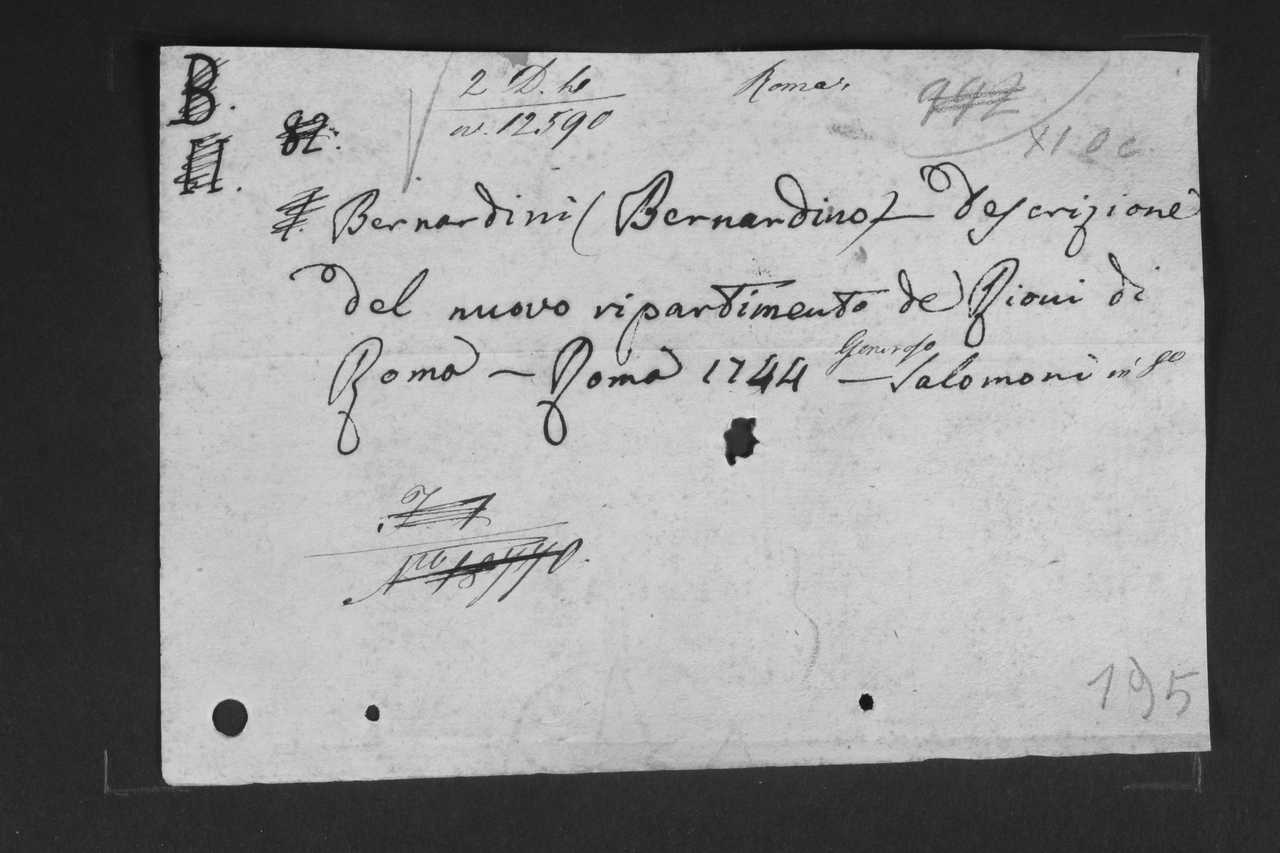 B.
II.
82.
2 D. h
nv. 12590
Roma,
942
XI e c.
Bernardini (Bernardino) – Descrizione
del nuovo ripartimento de Rioni di
Roma – Roma 1744 – Generoso Salomoni in 8º
195